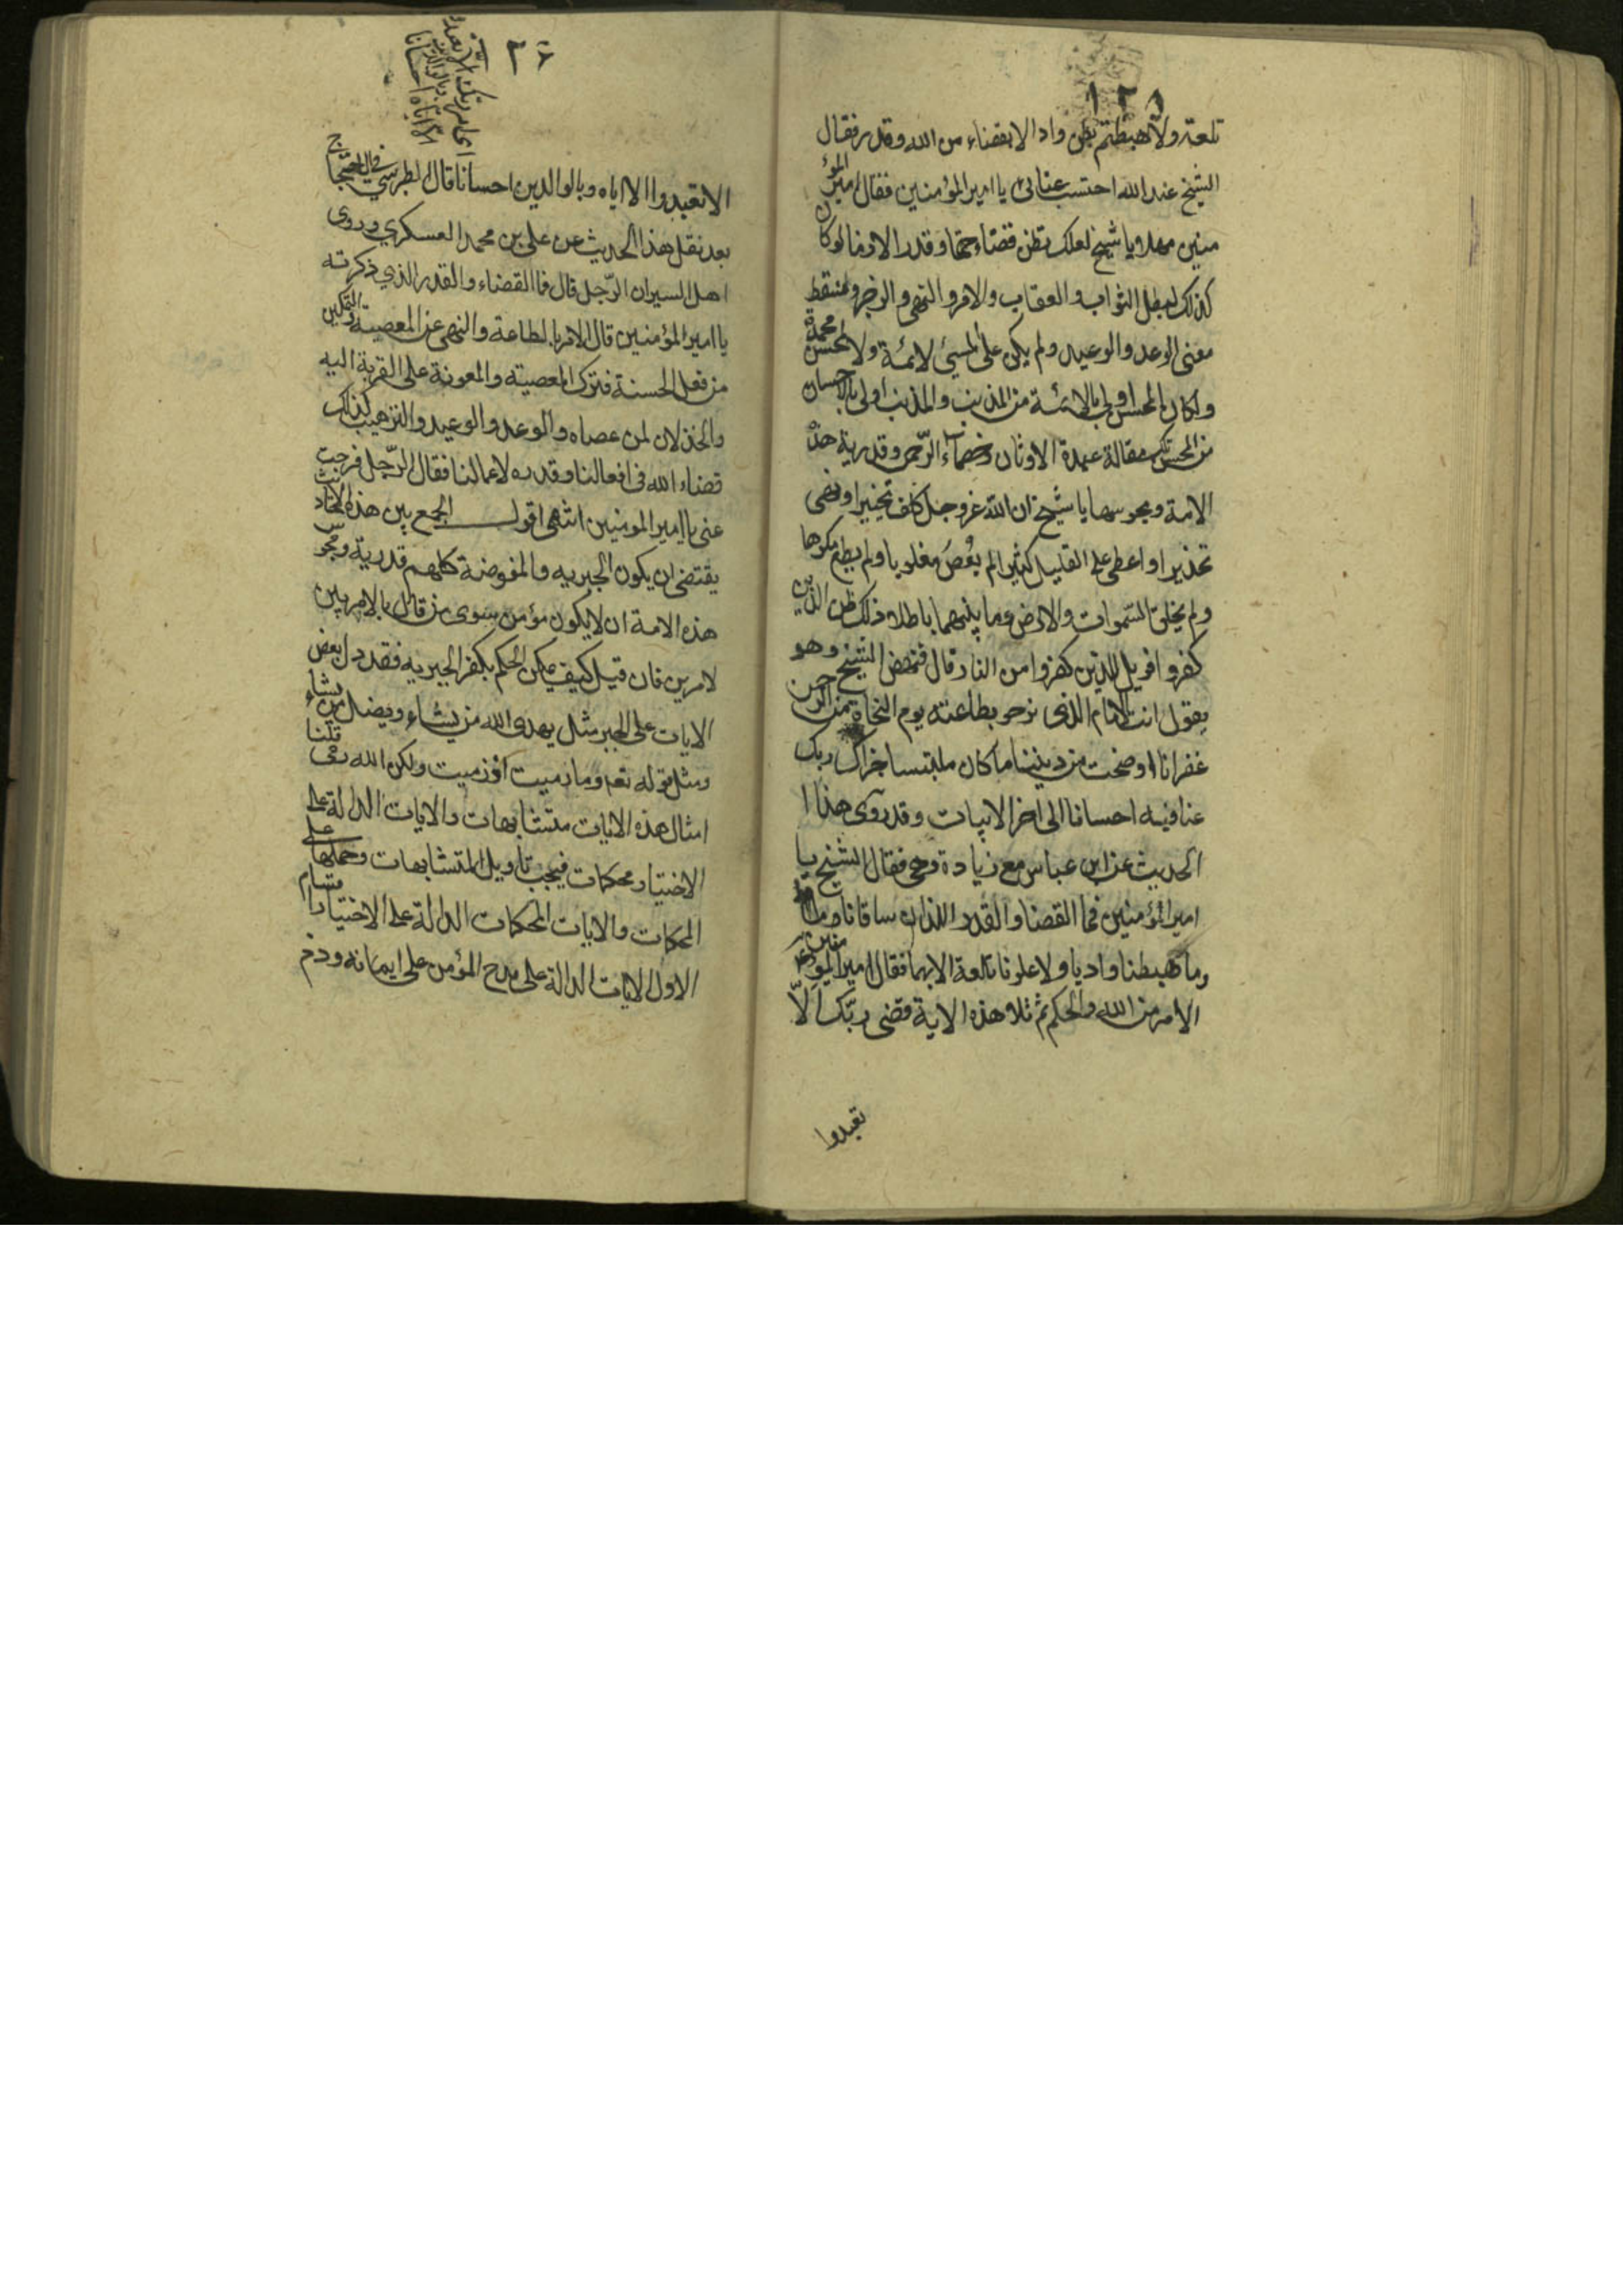 ١٢٥
تلعة ولا هبطتم بطن واد الا بقضاء من الله وقدر فقال
الشيخ عند الله احتسب عنائى يا امير المؤمنين فقال امير المؤ
منين مهلا يا شيخ لعلك تظن قضاء حتما وقدرا لازما لو كان
كذلك لبطل الثواب والعقاب والامر والنهى والزجر ولسقط
معنى الوعد والوعيد ولم يكن على المسيئ لائمة ولا لمحسن محمدة
ولكان المحسن اولى بالائمة من المذنب والمذنب اولى بالاحسان
من المحسن تلك مقالة عبدة الاوثان وخصماء الرّحمن وقدرية هذه
الامة ومجوسها يا شيخ ان الله عز وجل كلف تخييرا ونهى
تحذيرا واعطى على القليل كثيرا لم يُعْصَ مغلوبا ولم يطع مكرها
ولم يخلق السّموات والارض وما بينهما باطلا ذلك ظن الذين
كفروا فويل للذين كفروا من النار قال فنهض الشيخ وهو
يقول انت الامام الذى نرجو بطاعته يوم النجاة من الرحمن
غفرانا اوضحت من ديننا ما كان ملتبسا جزاك ربك
عنا فيه احسانا الى اخر الابيات وقد روى هذا ا
الحديث عن ابن عباس مع زيادة وهى فقال الشيخ يا
امير المؤمنين فما القضا والقدر اللذان ساقانا
وما هبطنا واديا ولا علونا تلعة الا بهما فقال امير المؤمنين
الامر من الله والحكم ثم تلا هذه الاية وقضى ربّك الاّ
تعبدوا
٢٦
الا تعبدوا الا اياه وبالوالدين احسانا قال الطبرسي في الاحتجاج
بعد نقل هذا الحديث عن على بن محمد العسكري وروى
اهل السير ان الرّجل قال فما القضاء والقدر الذي ذكرته
يا امير المؤمنين قال الامر بالطاعة والنهى عن المعصية والتمكين
من فعل الحسنة وترك المعصية والمعونة على القربة اليه
والخذلان لمن عصاه والوعد والوعيد والترهيب كذلك
قضاء الله فى افعالنا وقدره لاعمالنا فقال الرّجل فرجت
عنى يا امير المومنين انتهى اقول الجمع بين هذه الاخبار
يقتضى ان يكون الجبريه والمفوضة كلهم قدرية ومجوس
هذه الامة ان لا يكون مؤمن سوى من قائل بالامر بين
لامرين فان قيل كيف يمكن الحكم بكفر الجبريه فقد دل بعض
الايات على الجبر مثل يهدى الله من يشاء ويضل من يشاء
ومثل قوله تعم وما رميت اذ رميت ولكن الله رمى قلنا
امثال هذه الايات متشابهات والايات الدالة على
الاختيار محكمات فيجب تاويل المتشابهات وحملها على
المحكمات والايات المحكمات الدالة على الاختيار اقسام
الاول الايات الدالة على مدح المؤمن على ايمانه وذم